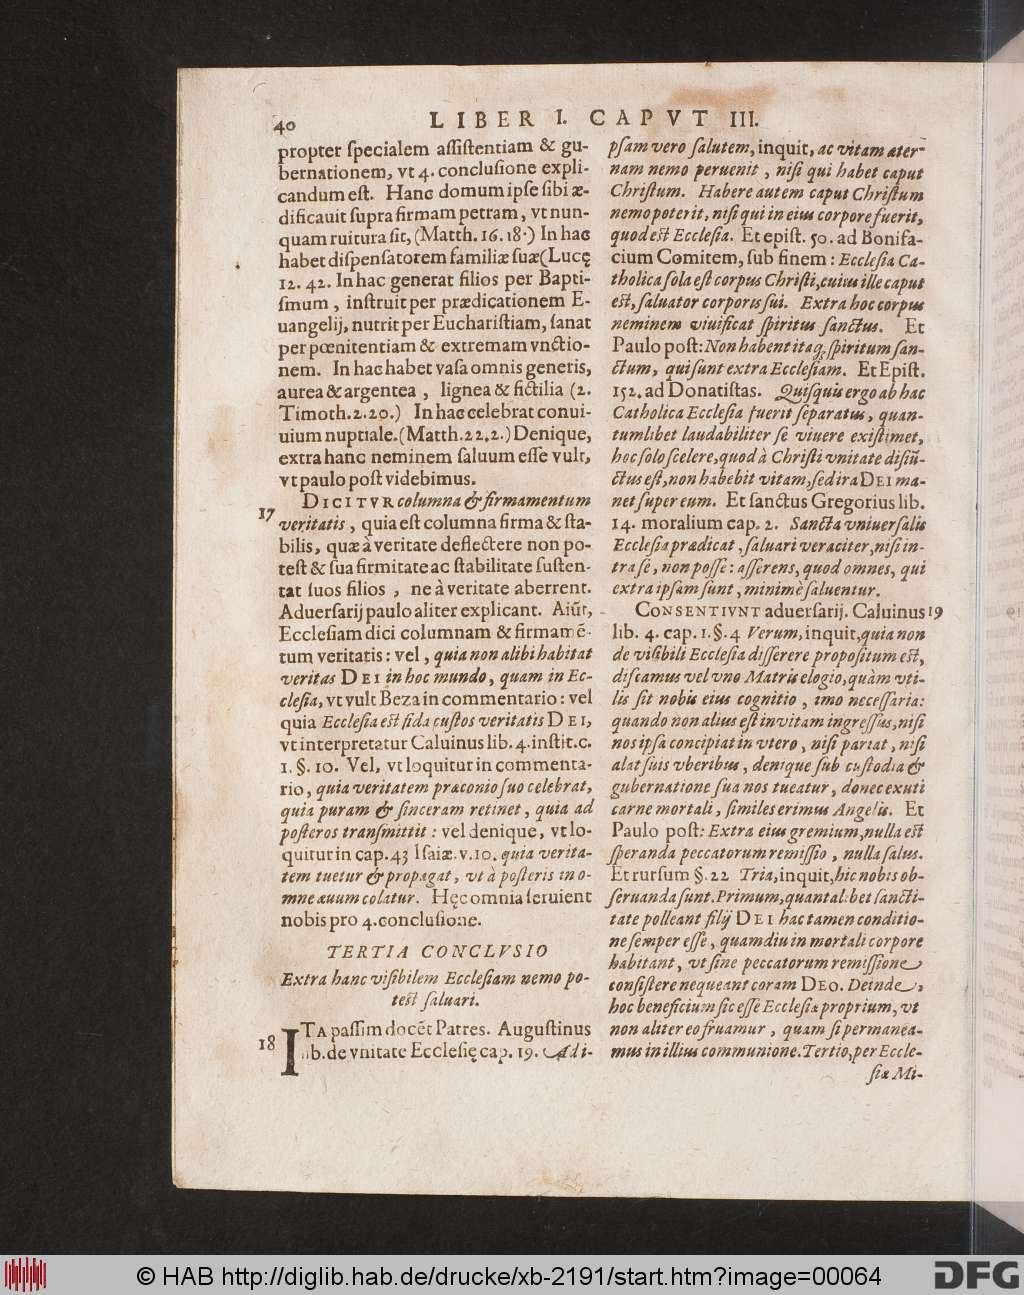 40
LIBER I. CAPVT III.
propter ſpecialem aſſiſtentiam & gu-
bernationem, vt 4. concluſione expli-
candum eſt. Hanc domum ipſe ſibi æ-
dificauit ſupra firmam petram, vt nun-
quam ruitura ſit, (Matth. 16. 18.) In hac
habet diſpenſatorem familiæ ſuæ (Lucę
12. 42. In hac generat filios per Bapti-
ſmum, inſtruit per prædicationem E-
uangelij, nutrit per Euchariſtiam, ſanat
per pœnitentiam & extremam vnctio-
nem. In hac habet vaſa omnis generis,
aurea & argentea, lignea & fictilia (2.
Timoth. 2. 20.) In hac celebrat conui-
uium nuptiale. (Matth. 22. 2.) Denique,
extra hanc neminem ſaluum eſſe vult,
vt paulo poſt videbimus.
17 DICITVR columna & firmamentum
veritatis, quia eſt columna firma & ſta-
bilis, quæ à veritate deflectere non po-
teſt & ſua firmitate ac ſtabilitate ſuſten-
tat ſuos filios, ne à veritate aberrent.
Aduerſarij paulo aliter explicant. Aiūt,
Eccleſiam dici columnam & firmamē-
tum veritatis: vel, quia non alibi habitat
veritas DEI in hoc mundo, quam in Ec-
cleſia, vt vult Beza in commentario: vel
quia Eccleſia eſt fida cuſtos veritatis DEI,
vt interpretatur Caluinus lib. 4. inſtit. c.
1. §. 10. Vel, vt loquitur in commenta-
rio, quia veritatem præconio ſuo celebrat,
quia puram & ſinceram retinet, quia ad
poſteros tranſmittit: vel denique, vt lo-
quitur in cap. 43 Iſaiæ. v. 10. quia verita-
tem tuetur & propagat, vt à poſteris in o-
mne æuum colatur. Hęc omnia ſeruient
nobis pro 4. concluſione.
TERTIA CONCLVSIO
Extra hanc viſibilem Eccleſiam nemo po-
teſt ſaluari.
18 ITA paſſim docēt Patres. Auguſtinus
lib. de vnitate Eccleſię cap. 19. Adi-
pſam vero ſalutem, inquit, ac vitam æter-
nam nemo peruenit, niſi qui habet caput
Chriſtum. Habere autem caput Chriſtum
nemo poterit, niſi qui in eius corpore fuerit,
quod eſt Eccleſia. Et epiſt. 50. ad Bonifa-
cium Comitem, ſub finem: Eccleſia Ca-
tholica ſola eſt corpus Chriſti, cuius ille caput
eſt, ſaluator corporis ſui. Extra hoc corpus
neminem viuificat ſpiritus ſanctus. Et
Paulo poſt: Non habent itaq; ſpiritum ſan-
ctum, qui ſunt extra Eccleſiam. Et Epiſt.
152. ad Donatiſtas. Quiſquis ergo ab hac
Catholica Eccleſia fuerit ſeparatus, quan-
tumlibet laudabiliter ſe viuere exiſtimet,
hoc ſolo ſcelere, quod à Chriſti vnitate diſiū-
ctus eſt, non habebit vitam, ſed ira DEI ma-
net ſuper eum. Et ſanctus Gregorius lib.
14. moralium cap. 2. Sancta vniuerſalis
Eccleſia prædicat, ſaluari veraciter, niſi in-
tra ſe, non poſſe: aſſerens, quod omnes, qui
extra ipſam ſunt, minimè ſaluentur.
CONSENTIVNT aduerſarij. Caluinus 19
lib. 4. cap. 1. §. 4 Verum, inquit, quia non
de viſibili Eccleſia diſſerere propoſitum eſt,
diſcamus vel vno Matris elogio, quàm vti-
lis ſit nobis eius cognitio, imo neceſſaria:
quando non alius eſt in vitam ingreſſus, niſi
nos ipſa concipiat in vtero, niſi pariat, niſi
alat ſuis vberibus, denique ſub cuſtodia &
gubernatione ſua nos tueatur, donec exuti
carne mortali, ſimiles erimus Angelis. Et
Paulo poſt: Extra eius gremium, nulla eſt
ſperanda peccatorum remiſſio, nulla ſalus.
Et rurſum §. 22 Tria, inquit, hic nobis ob-
ſeruanda ſunt. Primum, quantalibet ſancti-
tate polleant filij DEI hac tamen conditio-
ne ſemper eſſe, quamdiu in mortali corpore
habitant, vt ſine peccatorum remiſſione
conſiſtere nequeant coram DEO. Deinde,
hoc beneficium ſic eſſe Eccleſiæ proprium, vt
non aliter eo fruamur, quam ſi permanea-
mus in illius communione. Tertio, per Eccle-
ſiæ Mi-
© HAB http://diglib.hab.de/drucke/xb-2191/start.htm?image=00064
DFG